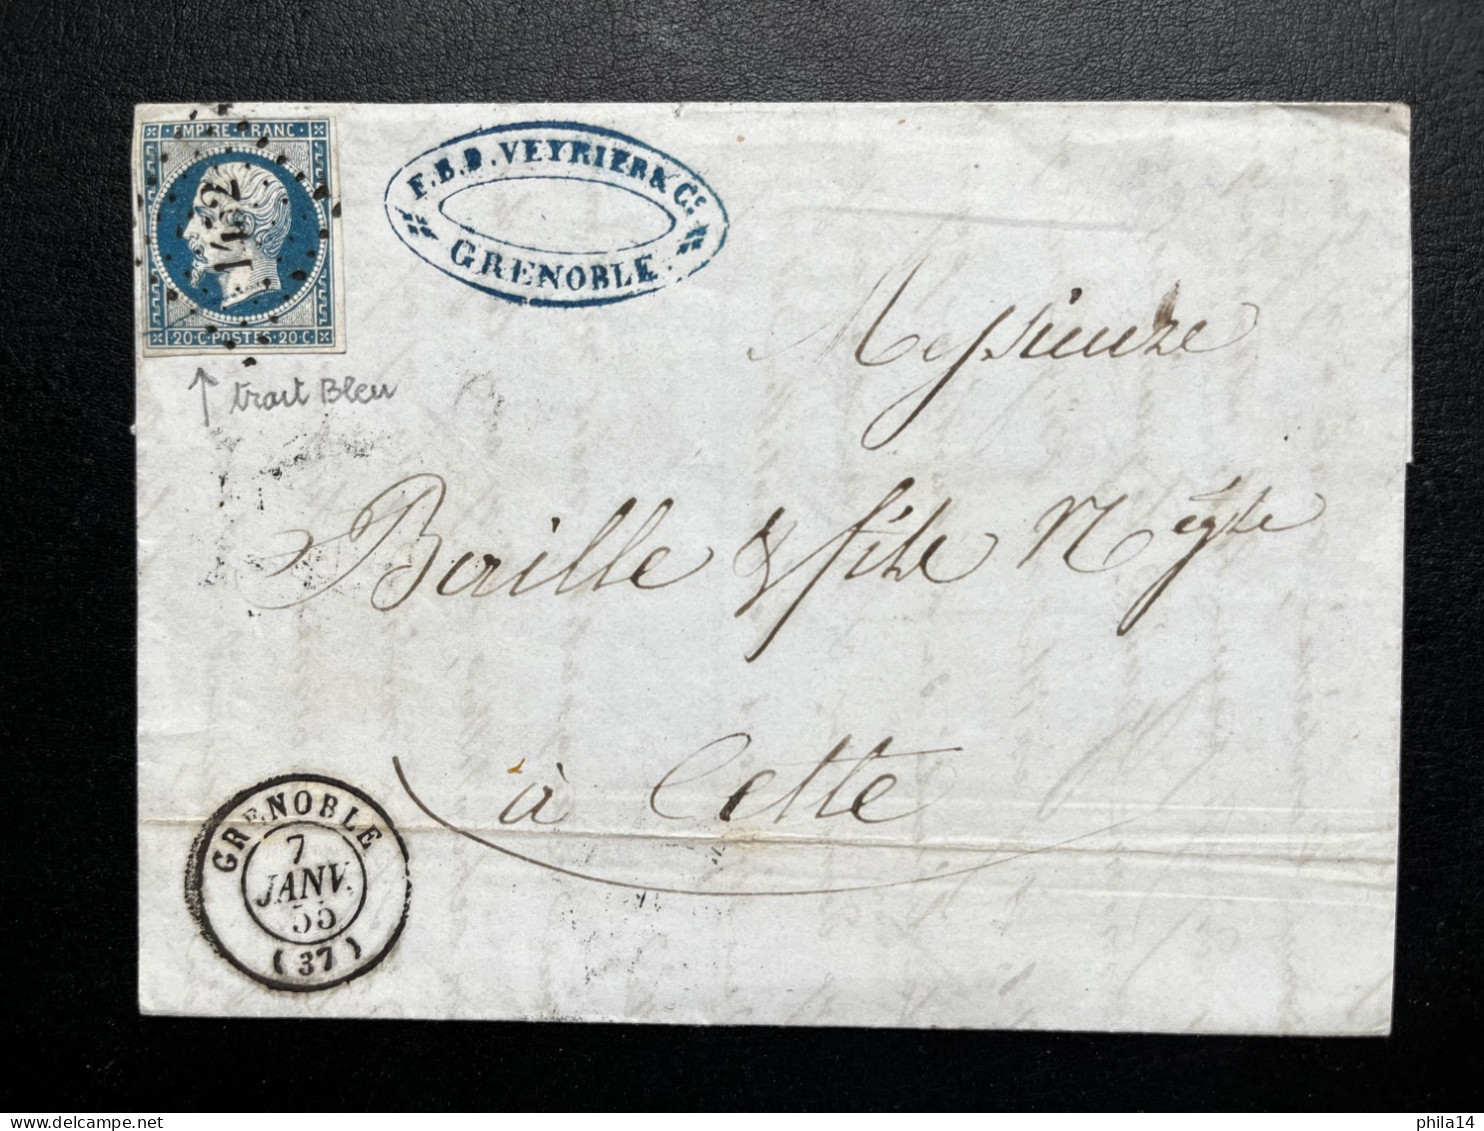 EMPIRE FRANC
1482
20·C·POSTES·20·C
F.B.D. VEYRIER & Cᵉ
GRENOBLE
↑ trait Bleu
Messieurs
Baille & fils Négts
à Cette
GRENOBLE
7
JANV.
55
(37)
phila14